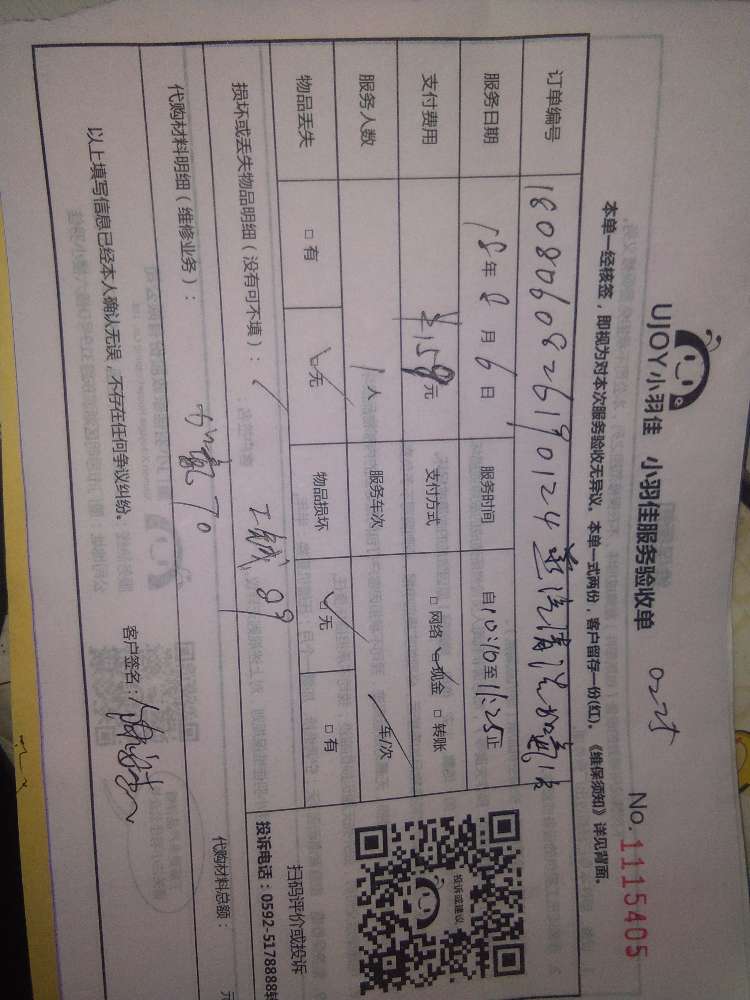 UJOY小羽佳 小羽佳服务验收单 No.1115405
本单一经核签，即视为对本次服务验收无异议。本单一式两份，客户留存一份(红)。《维保须知》详见背面。
订单编号 1808060826190124 蒸汽清洗加氟
服务日期 18年8月6日 服务时间 自10:10至11:25止
支付费用 ¥159元 支付方式 □网络 ☑现金 □转账
服务人数 1人 服务车次 车/次
物品丢失 □有 ☑无 物品损坏 ☑无 □有
损坏或丢失物品明细（没有可不填）：
代购材料明细（维修业务）： 加氟70
代购材料总额： 元
以上填写信息已经本人确认无误，不存在任何争议纠纷。 客户签名：
投诉或建议
扫码评价或投诉
投诉电话：0592-5178888转